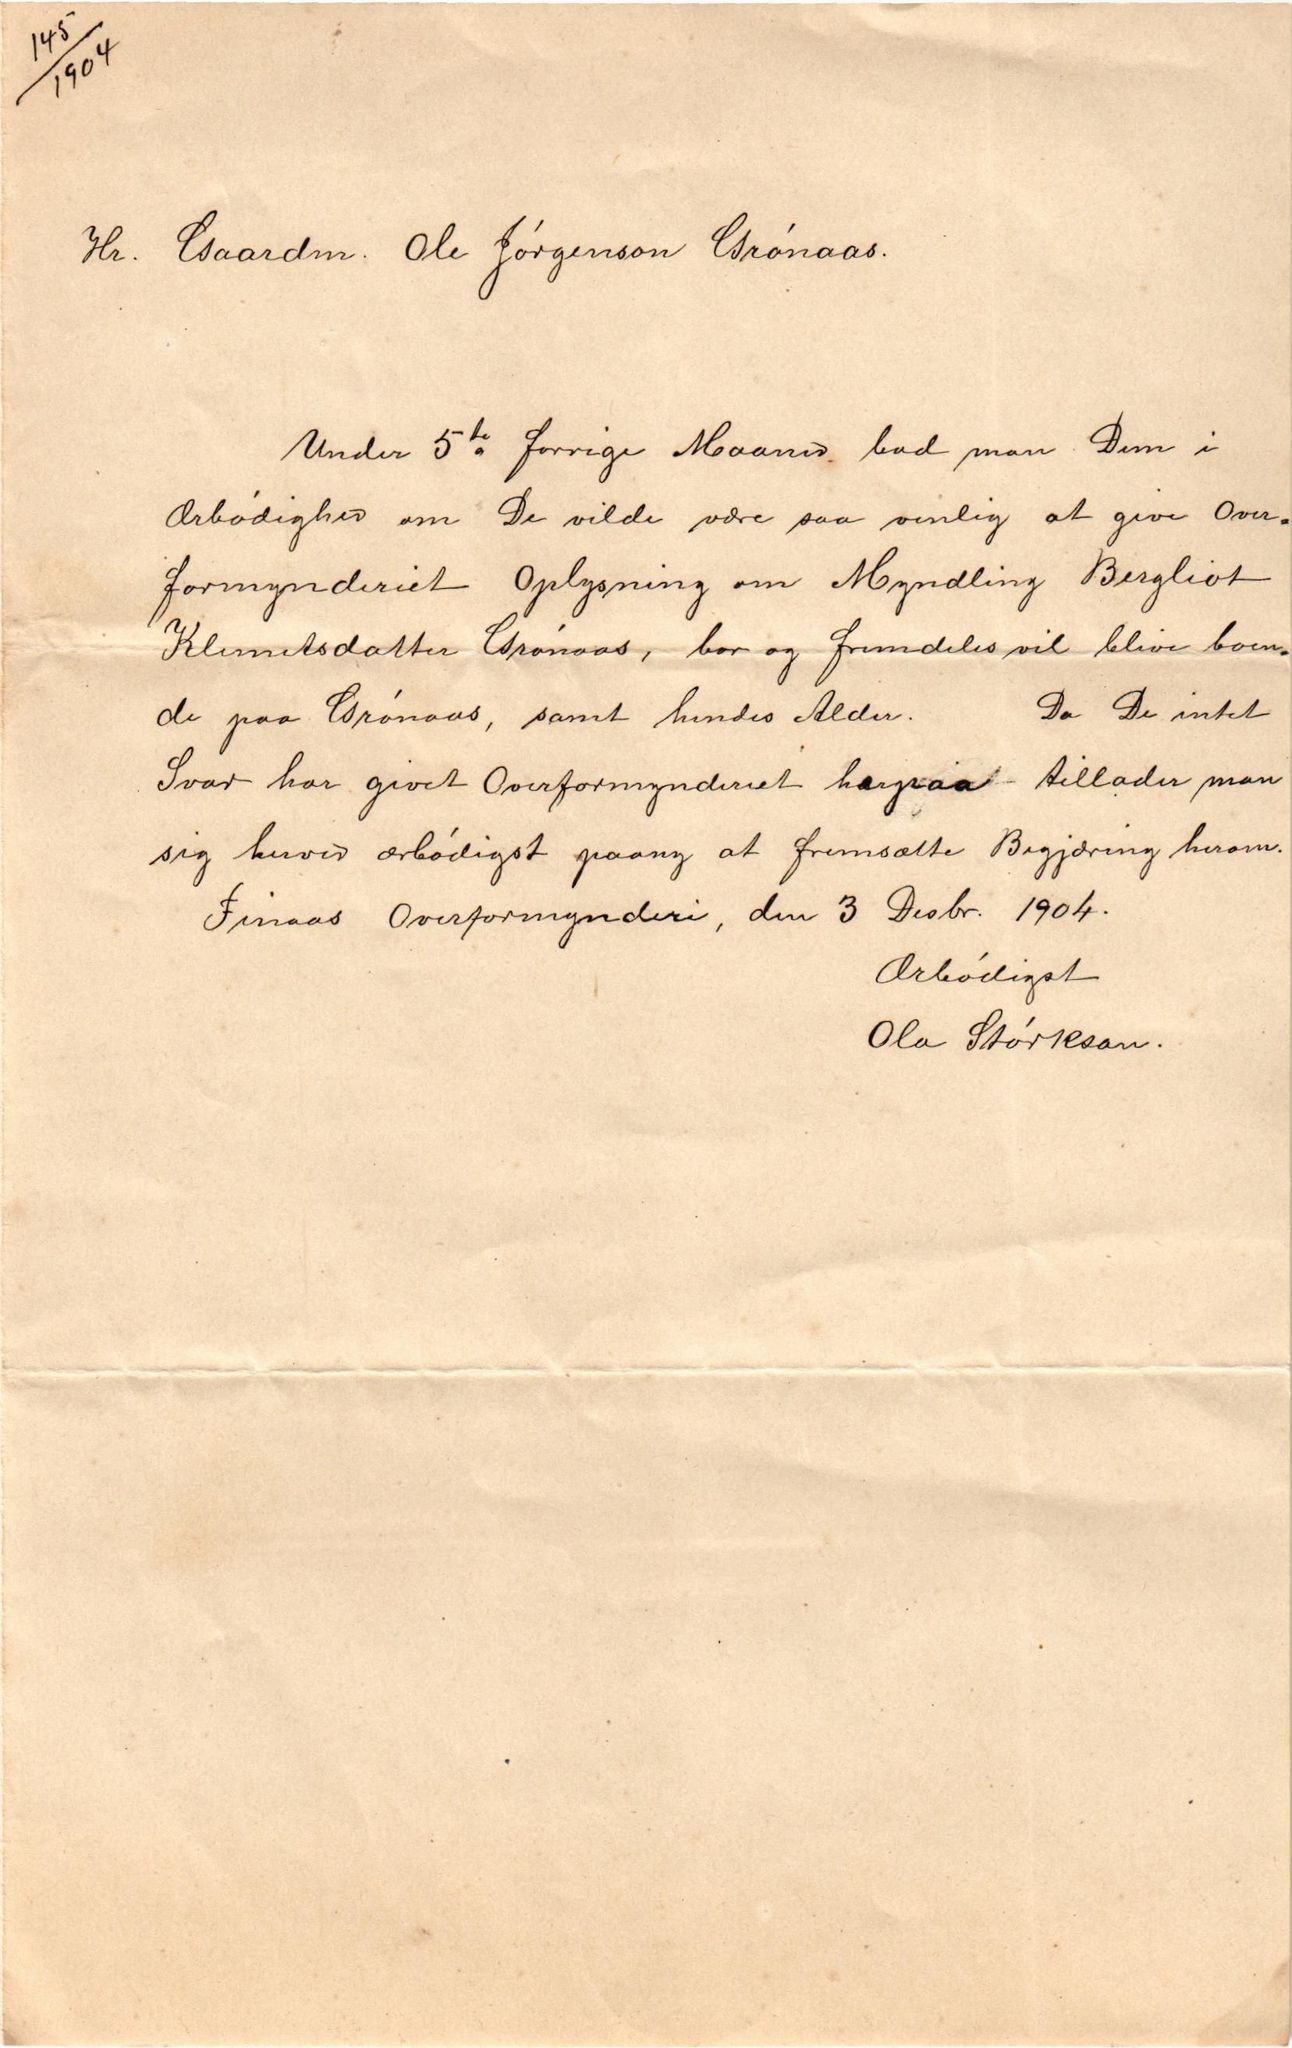 145/1904
Hr. Gaardm. Ole Jórgenson Grónaas.
Under 5te forrige Maaned bad man Dem i
Ærbódighed om De vilde være saa venlig at give Over-
formynderiet Oplysning om Myndling Bergliot
Klemetsdatter Grónaas, bor og fremdeles vil blive boen-
de paa Grónaas, samt hendes Alder. Da De intet
Svar har givet Overformynderiet herpaa tillader man
sig herved ærbódigst paany at fremsætte Begjæring herom.
Finaas Overformynderi, den 3 Desbr. 1904.
Ærbódigst
Ola Stórkson.